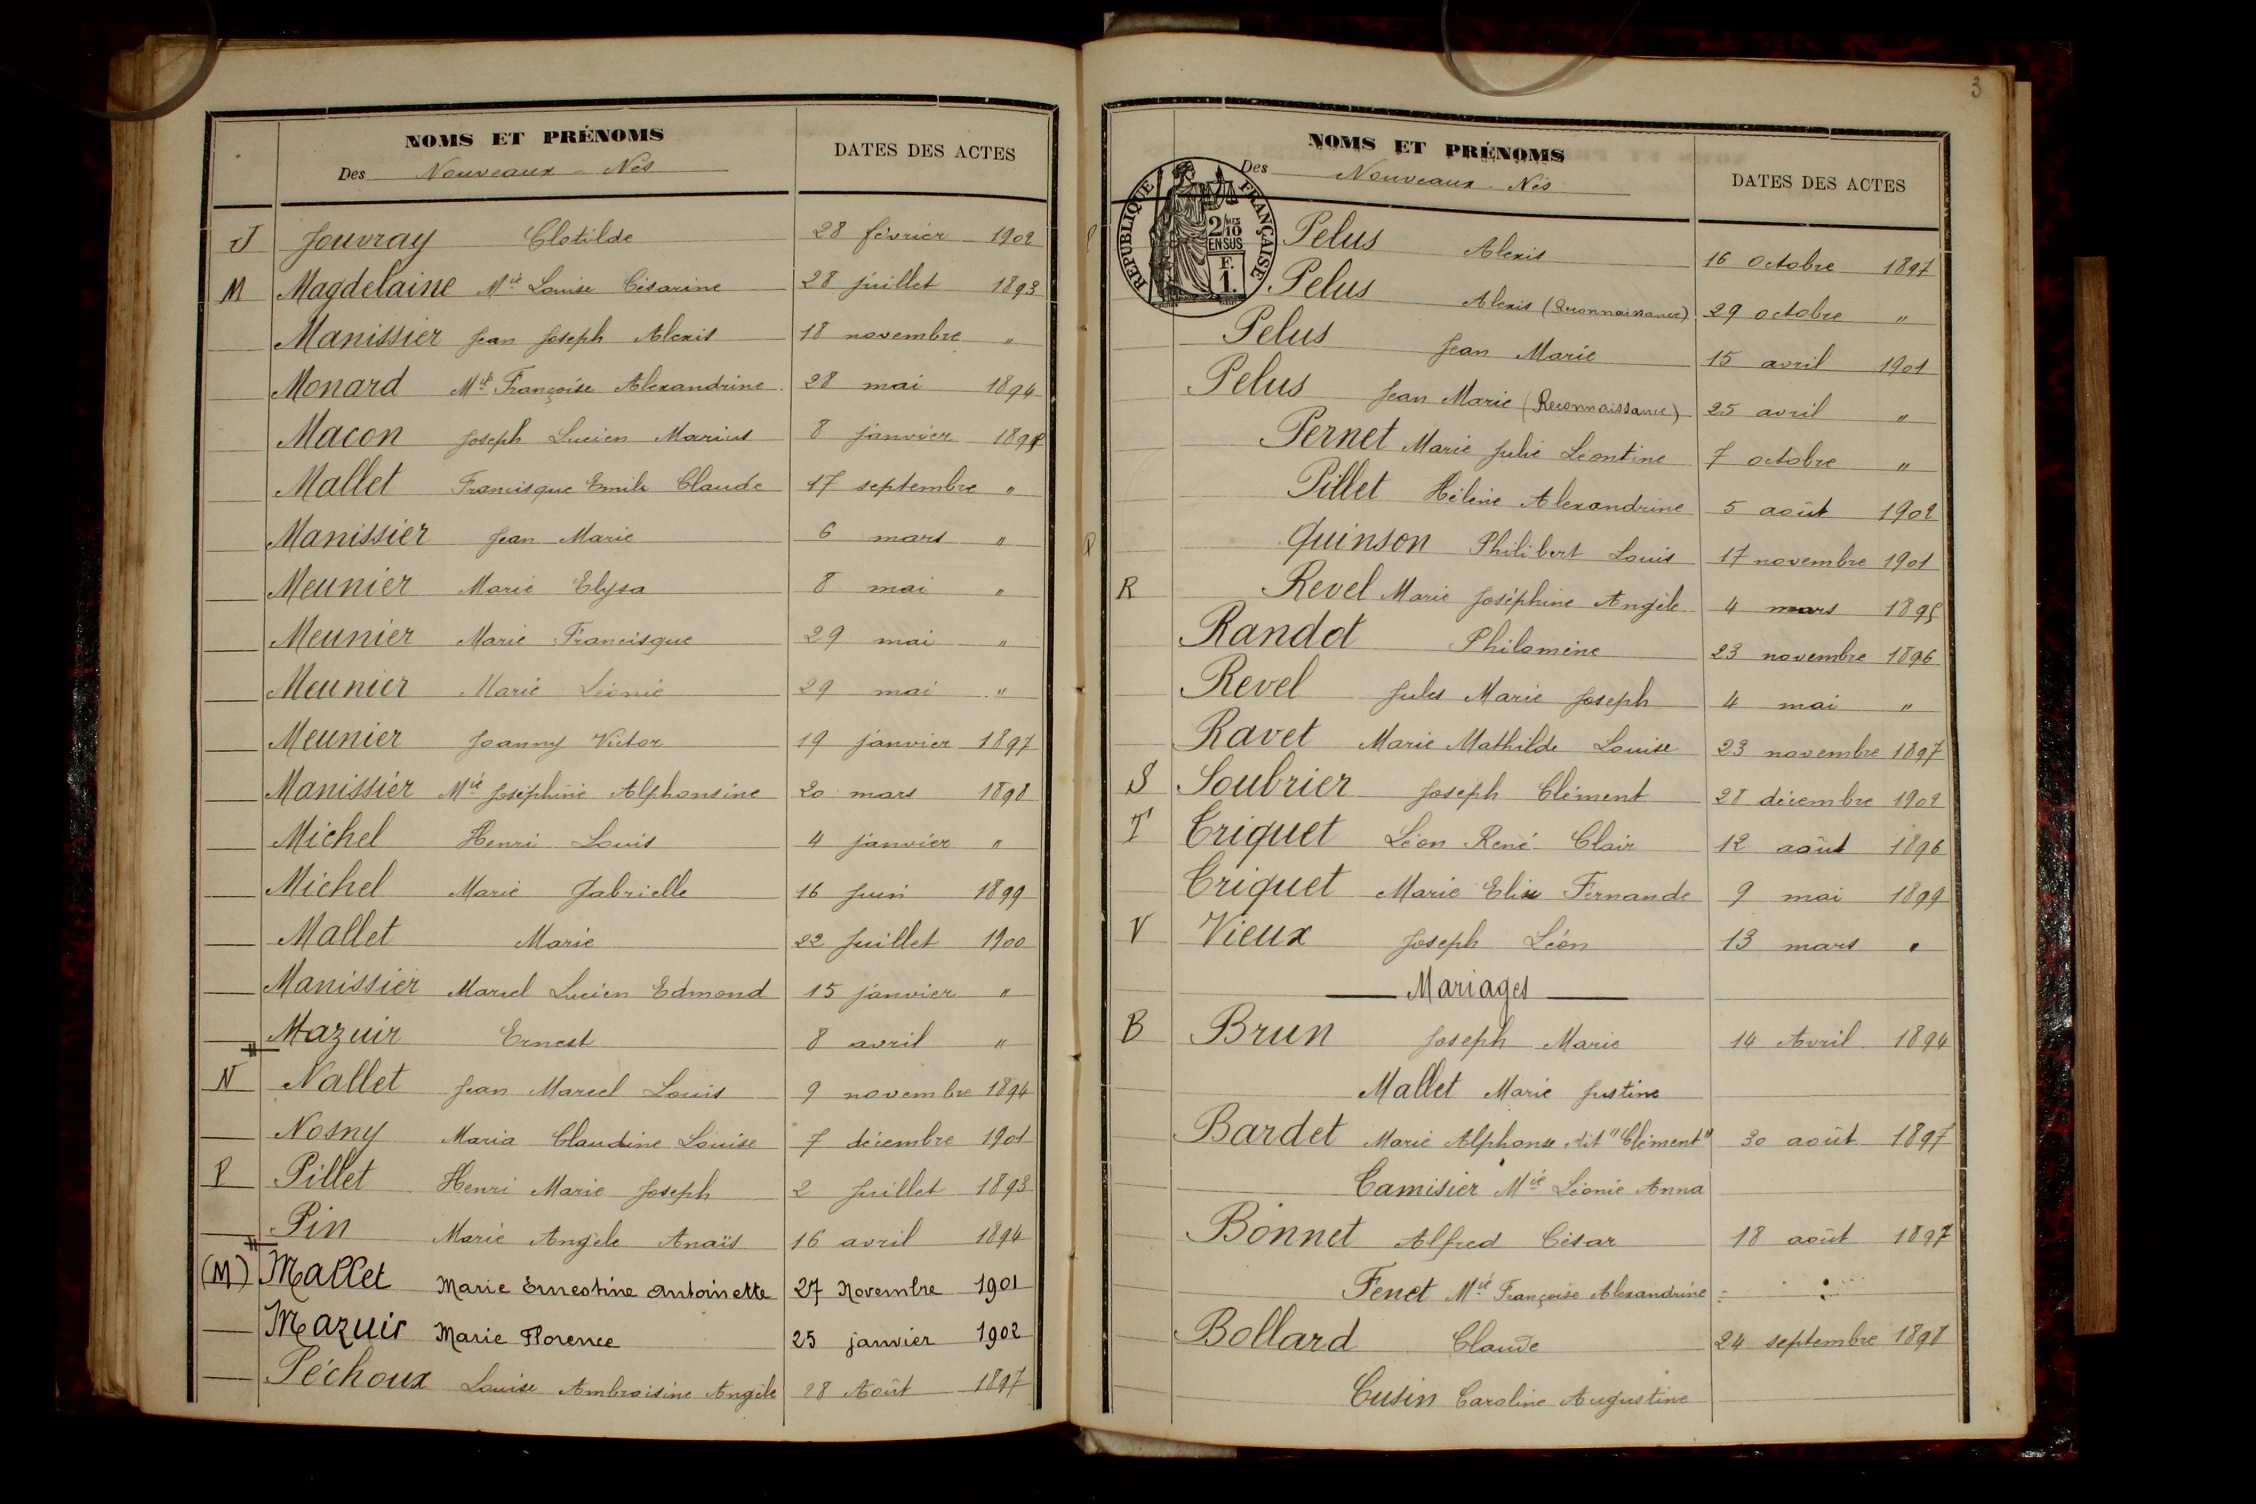 NOMS ET PRÉNOMS
Des Nouveaux-Nés
DATES DES ACTES
J Jouvray Clotilde 28 février 1902
M Magdelaine Mie Louise Césarine 28 juillet 1893
Manissier Jean Joseph Alexis 18 novembre "
Monard Mie Françoise Alexandrine 28 mai 1894
Macon Joseph Lucien Marius 8 janvier
Mallet Francisque Emile Claude 17 septembre "
Manissier Jean Marie 6 mars "
Meunier Marie Elysa 8 mai "
Meunier Marie Francisque 29 mai "
Meunier Marie Léonie 29 mai "
Meunier Joanny Victor 19 janvier 1897
Manissier Mie Joséphine Alphonsine 20 mars 1898
Michel Henri Louis 4 janvier "
Michel Marie Gabrielle 16 Juin 1899
Mallet Marie 22 Juillet 1900
Manissier Marcel Lucien Edmond 15 janvier "
Mazuir Ernest 8 avril "
N Nallet Jean Marcel Louis 9 novembre 1894
Nosny Maria Claudine Louise 7 décembre 1901
P Pillet Henri Marie Joseph 2 Juillet 1893
Pin Marie Angèle Anaïs 16 avril 1894
(M) Mallet Marie Ernestine Antoinette 27 Novembre 1901
Mazuir Marie Florence 25 janvier 1902
Péchoux Louise Ambroisine Angèle 28 Août 1897
3
NOMS ET PRÉNOMS
Des Nouveaux-Nés
DATES DES ACTES
RÉPUBLIQUE FRANÇAISE
2/10 MES
EN SUS
F.
1.
P Pelus Alexis 16 octobre 1897
Pelus Alexis (Reconnaissance) 29 octobre "
Pelus Jean Marie 15 avril 1901
Pelus Jean Marie (Reconnaissance) 25 avril "
Pernet Marie Julie Léontine 7 octobre "
Pillet Hélène Alexandrine 5 août 1902
Q Quinson Philibert Louis 17 novembre 1901
R Revel Marie Joséphine Angèle 4 mars 1895
Randot Philomène 23 novembre 1896
Revel Jules Marie Joseph 4 mai "
Ravet Marie Mathilde Louise 23 novembre 1897
S Soubrier Joseph Clément 28 décembre 1902
T Triquet Léon René Clair 12 août 1896
Triquet Marie Elise Fernande 9 mai 1899
V Vieux Joseph Léon 13 mars "
Mariages
B Brun Joseph Marie 14 Avril 1894
Mallet Marie Justine
Bardet Marie Alphonse dit "Clément" 30 août 1897
Camisier Mie Léonie Anna
Bonnet Alfred César 18 août 1897
Fenet Mie Françoise Alexandrine
Bollard Claude 24 septembre 1898
Cusin Caroline Augustine